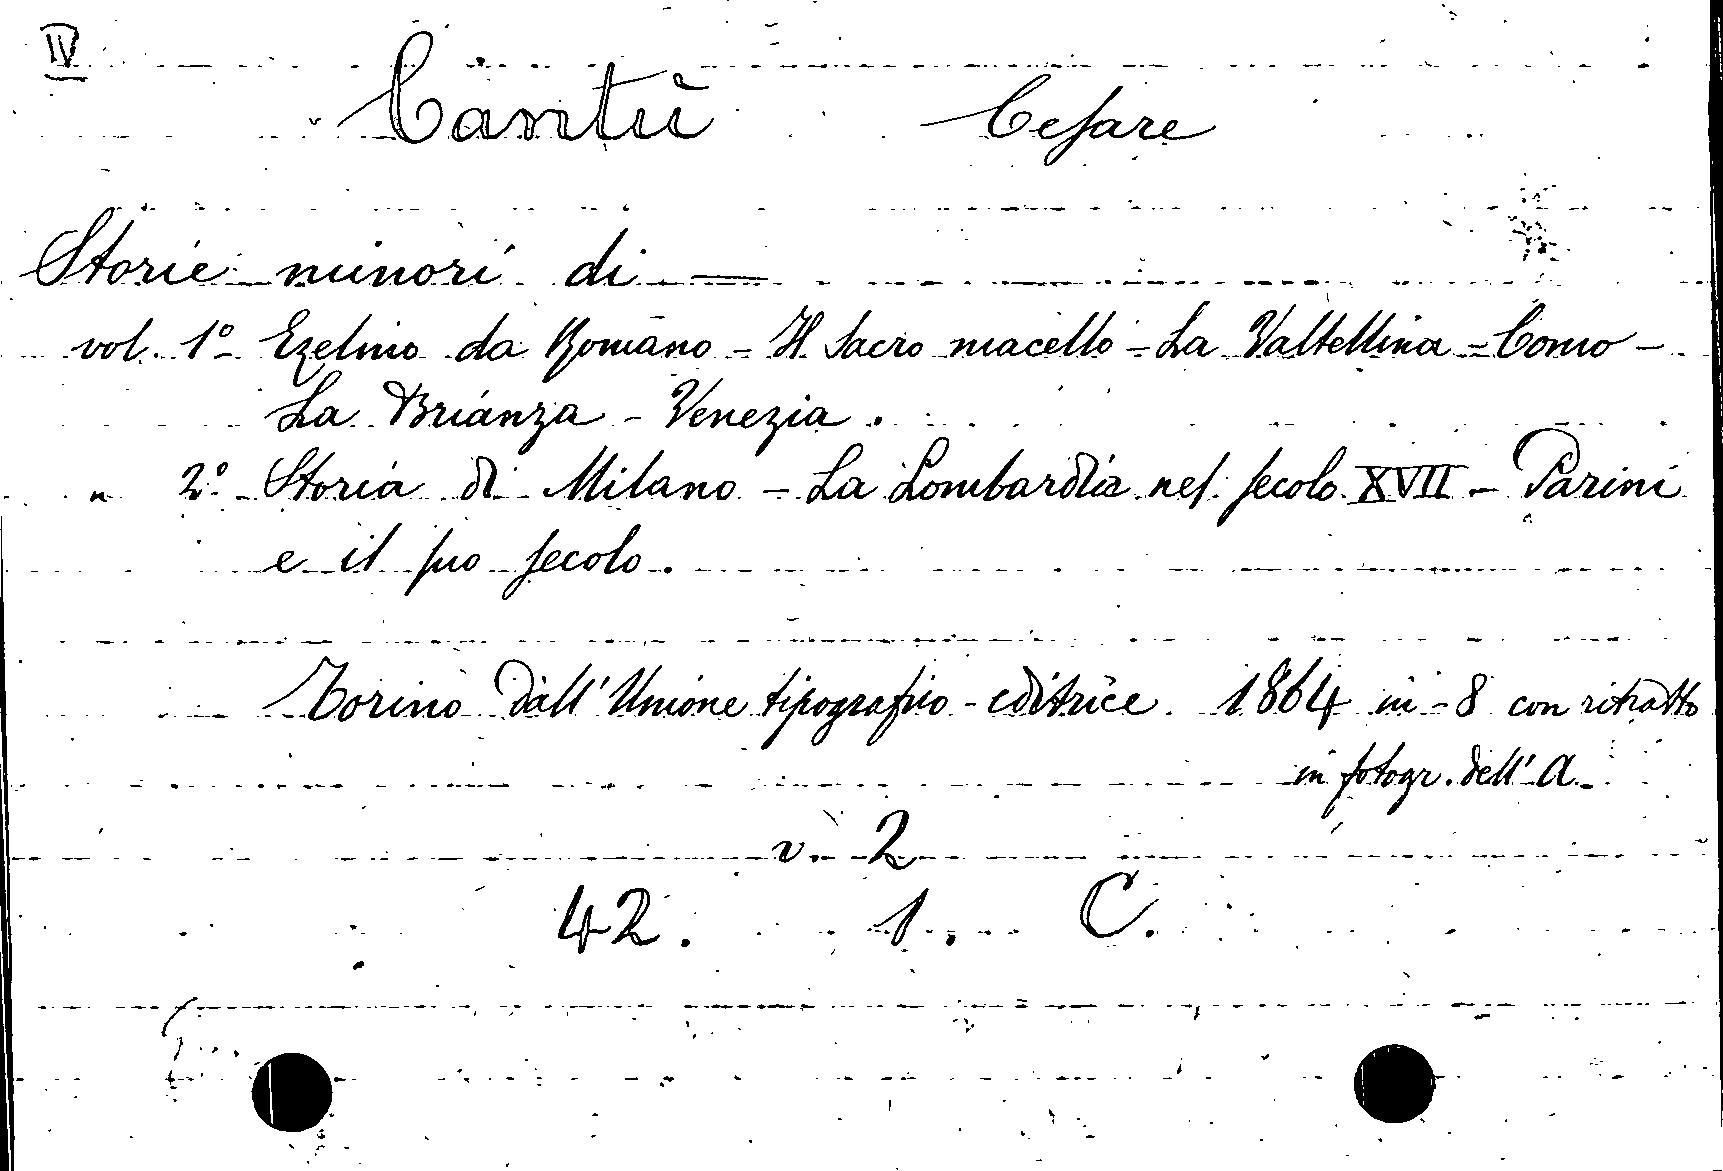 IV
Cantù Cesare
Storie minori di —
vol. 1º Ezelino da Romano - Il Sacro macello - La Valtellina - Como -
La Brianza - Venezia.
" 2º Storia di Milano - La Lombardia nel secolo XVII - Parini
e il suo secolo.
Torino dall'Unione tipografico-editrice 1864 in-8 con ritratto
in fotogr. dell'A.
v. 2
42. 1. C.